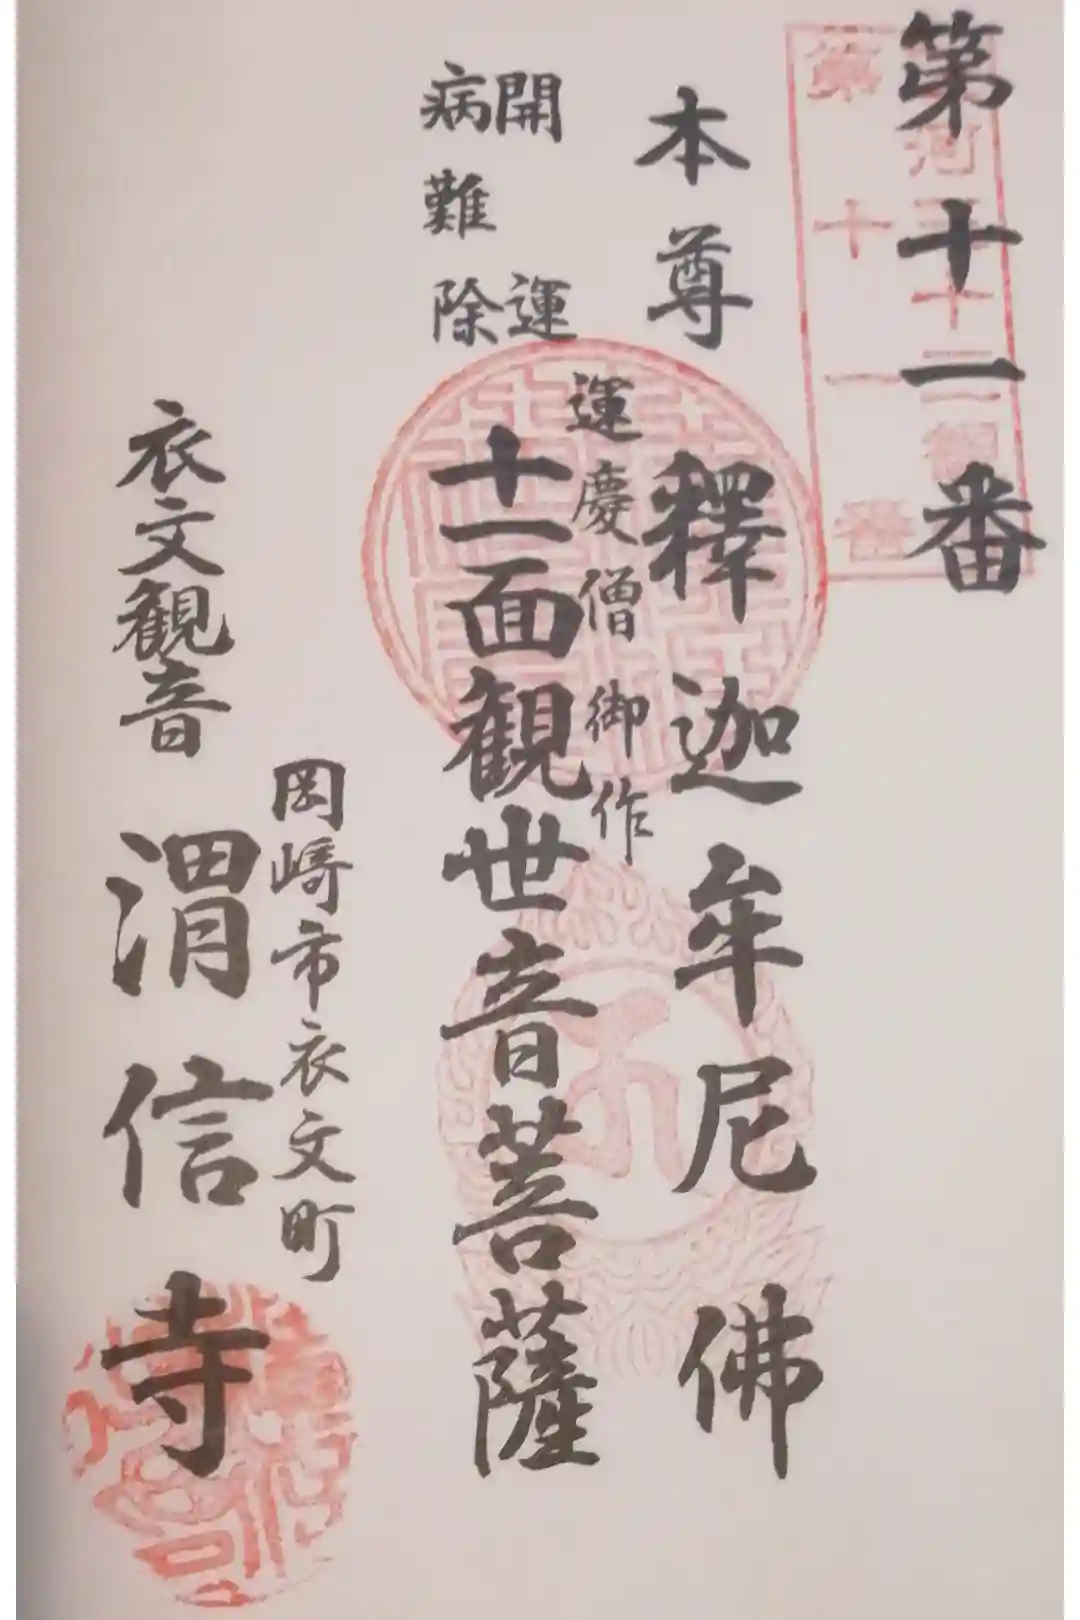 第十一番
第十一番
本尊 釋迦牟尼佛
運慶僧御作
開運
病難除
十一面観世音菩薩
岡崎市衣文町
衣文観音 渭信寺